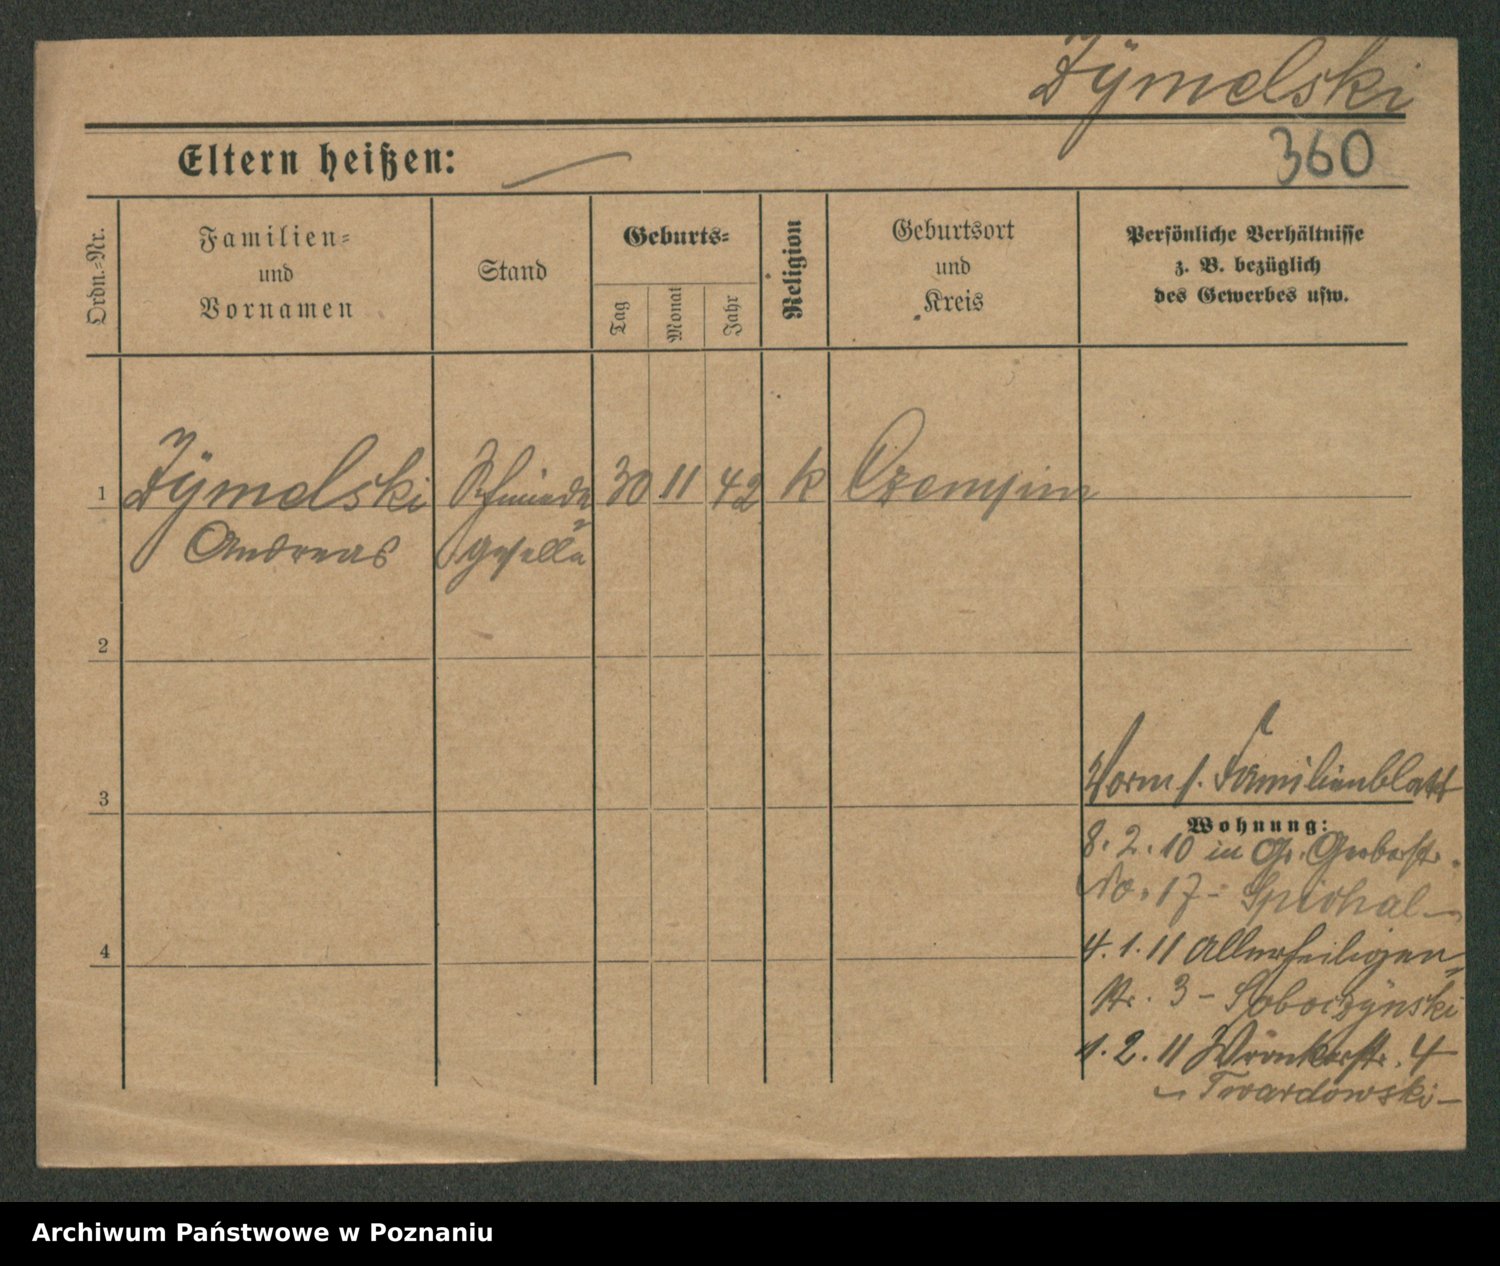 Zÿmelski
Eltern heißen: —
360
Ordn.=Nr.
Familien=
und
Vornamen
Stand
Geburts=
Tag
Monat
Jahr
Religion
Geburtsort
und
Kreis
Persönliche Verhältnisse
z. B. bezüglich
des Gewerbes usw.
1 Zÿmelski Schmiede 30 11 42 k Czempin
Andreas geselle
2
3
4
Vorm s. Familienblatt
Wohnung:
8. 2. 10 in Gr. Gerberstr.
No. 17 - Spichal —
4. 1. 11 Allerheiligen
str. 3 - Soboczÿnski
1. 2. 11 Wronkerstr. 4
- Twardowski -
Archiwum Państwowe w Poznaniu